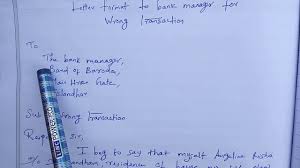 Letter format to bank manager for
Wrong Transaction
To
The bank manager,
Band of Baroda,
Hire Gate,
Jalandhar
Sub Wrong Transaction
Res Sir,
I beg to say that myself Angeline
residence of